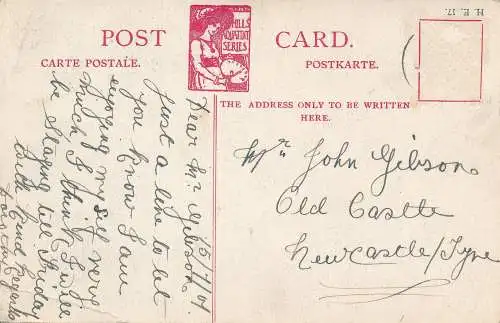 POST CARD.
CARTE POSTALE. POSTKARTE.
HILLS
AQUATINT
SERIES
H. E. 17.
THE ADDRESS ONLY TO BE WRITTEN
HERE.
15/7/04
Dear Mr Gibson
Just a line to let
you know I am
enjoying my self very
much I think I will
be staying till Friday
With Kind Regards
Mr John Gibson
Old Castle
Newcastle/Tyne